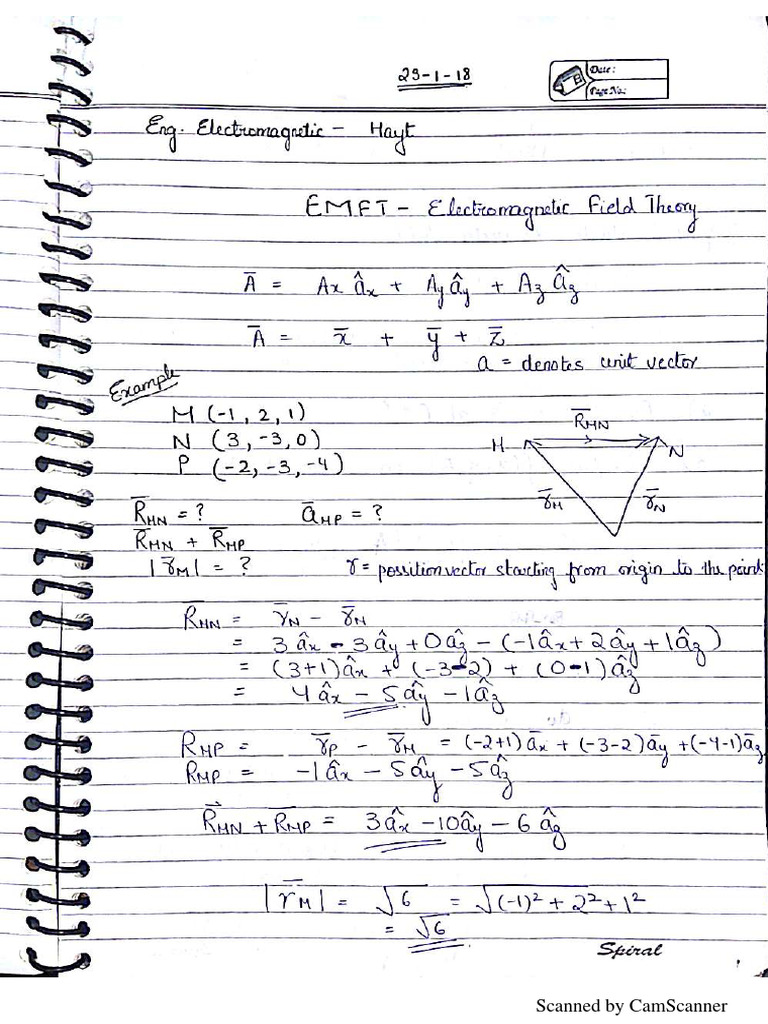 29-1-18
Date:
Page No.:
Eng. Electromagnetic - Hayt
EMFT - Electromagnetic Field Theory
A̅ = Ax âx + Ay ây + Az âz
A̅ = x̅ + y̅ + z̅
a = denotes unit vector
Example
M (-1, 2, 1)
N (3, -3, 0)
P (-2, -3, -4)
R̅MN
M
N
r̅M
r̅N
R̅MN = ? a̅MP = ?
R̅MN + R̅MP
|r̅M| = ? r = possition vector starting from origin to the point
R̅MN = r̅N - r̅M
= 3âx - 3ây + 0âz - (-1âx + 2ây + 1âz)
= (3+1)âx + (-3-2) + (0-1)âz
= 4âx - 5ây - 1âz
RMP = r̅P - r̅M = (-2+1)a̅x + (-3-2)a̅y + (-4-1)a̅z
RMP = -1âx - 5ây - 5âz
R̅MN + R̅MP = 3âx - 10ây - 6âz
|r̅M| = √6 = √(-1)² + 2² + 1²
= √6
Spiral
Scanned by CamScanner